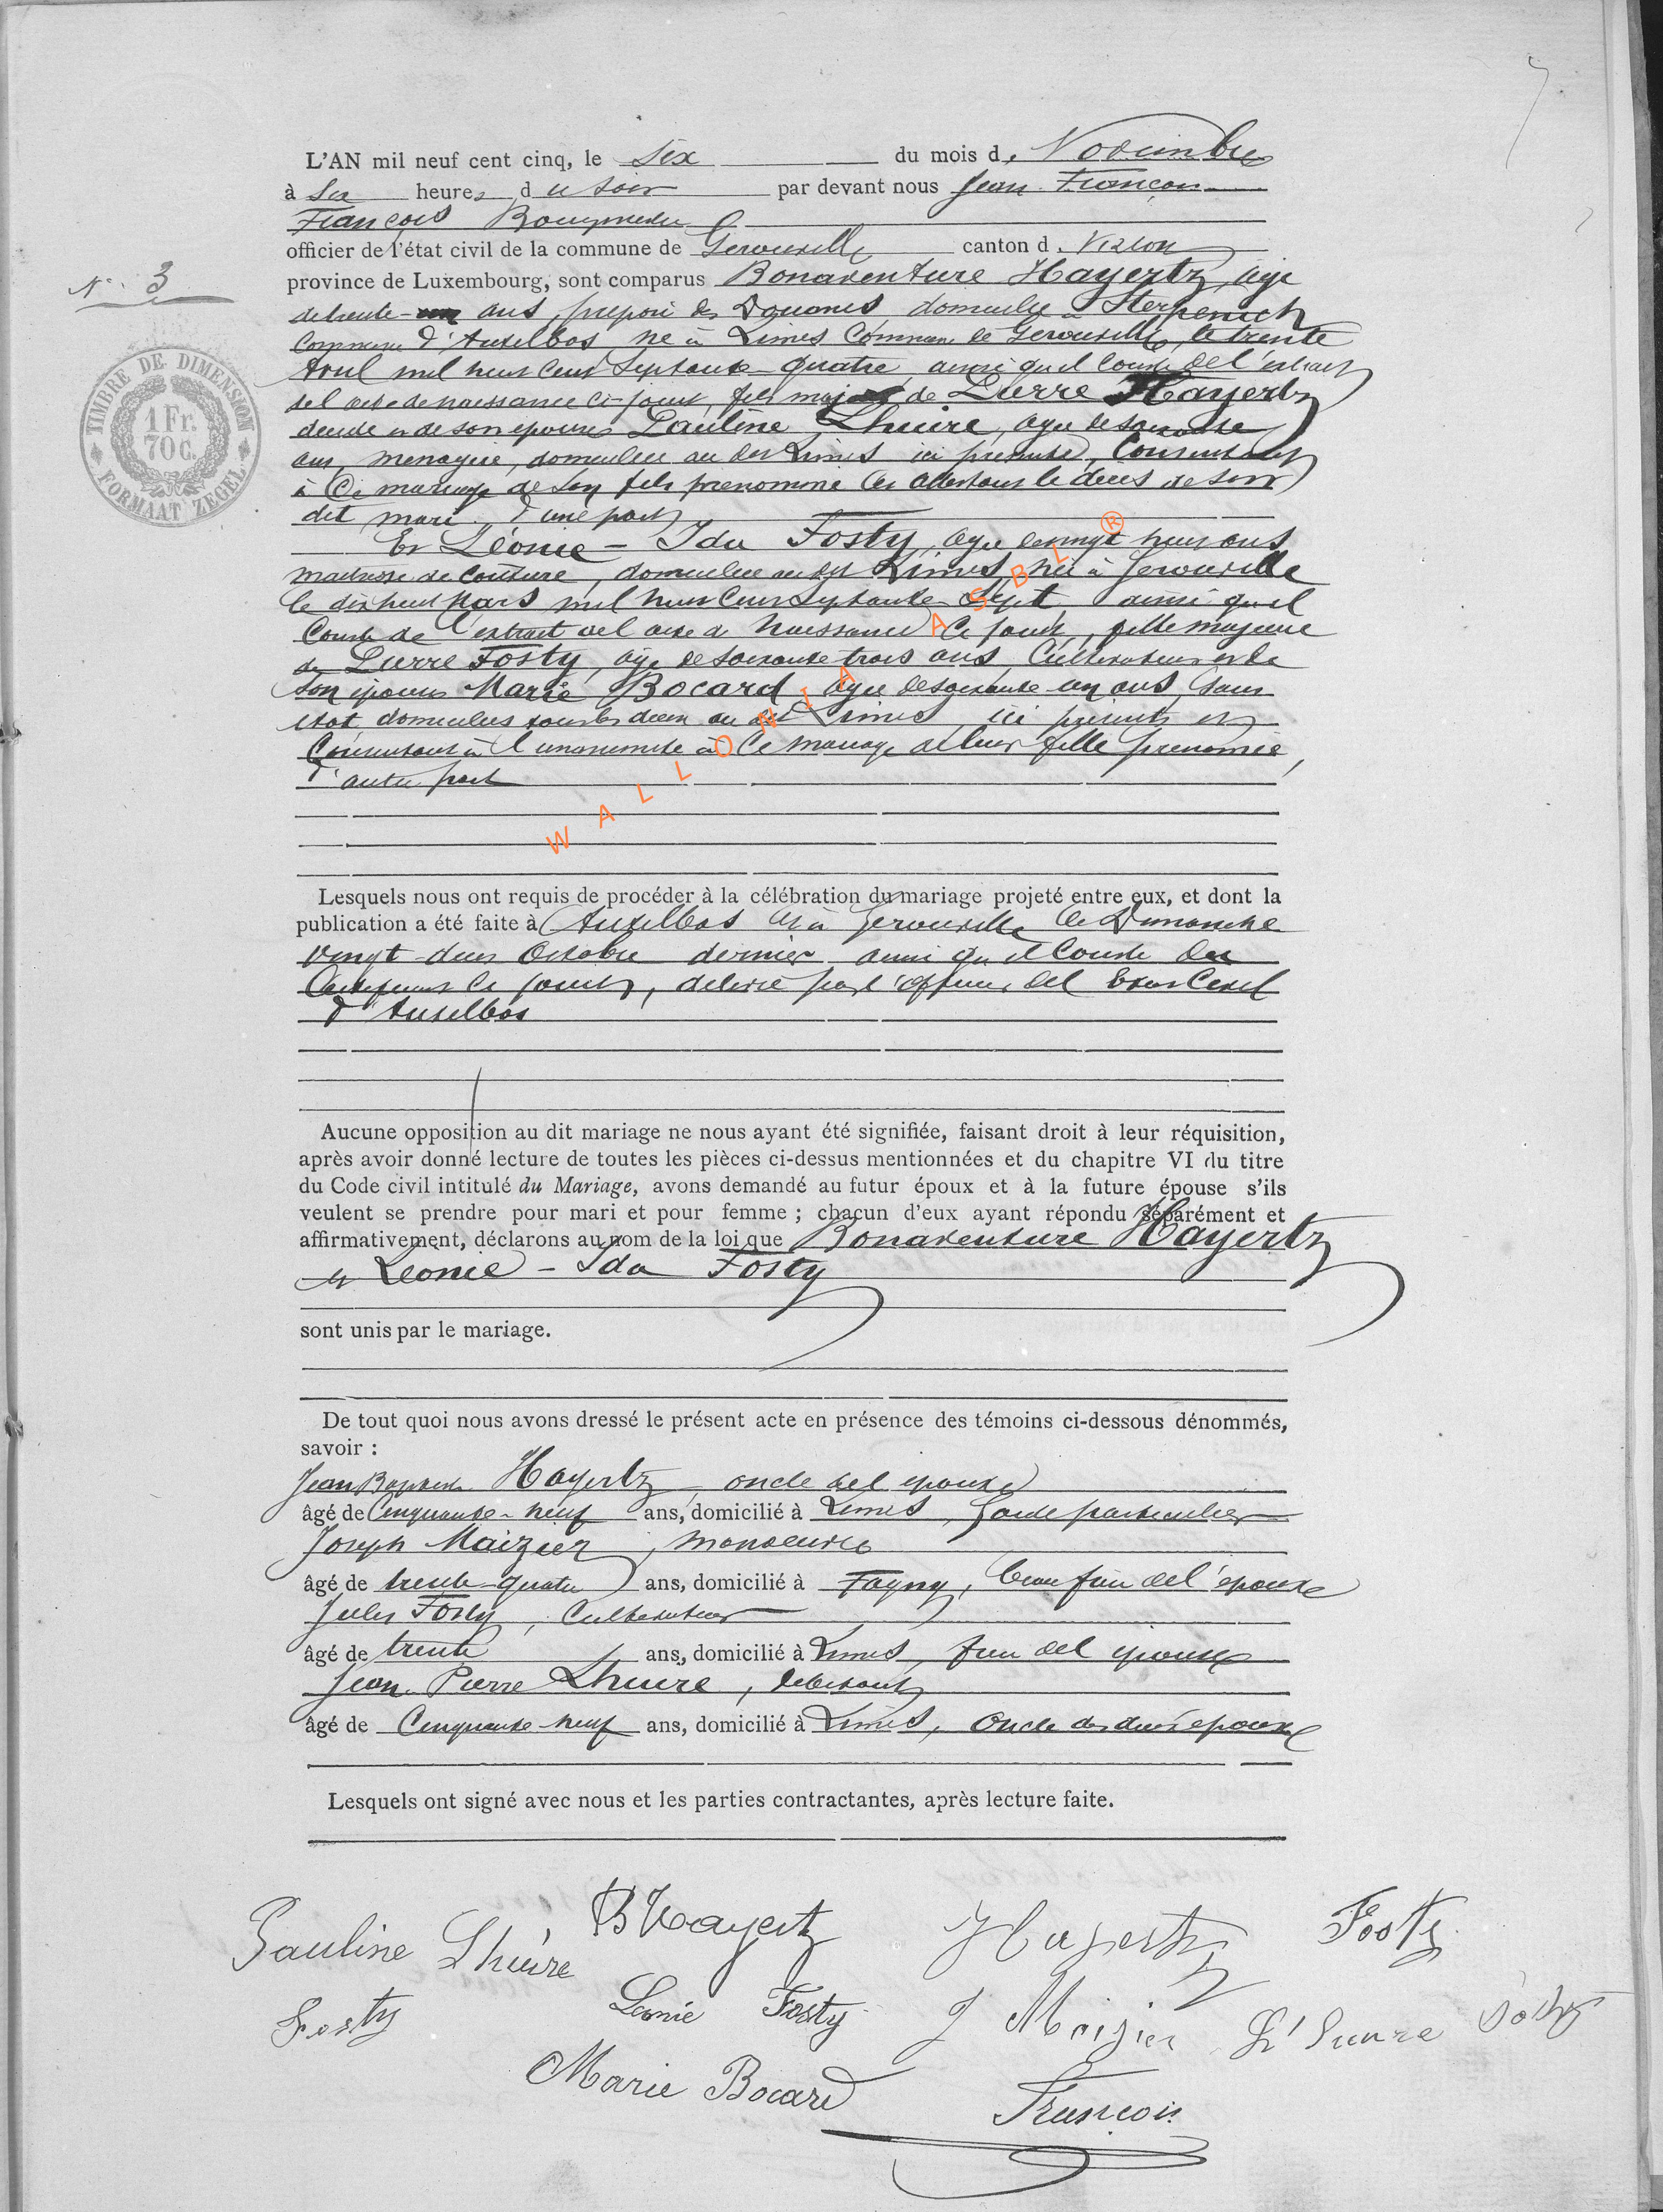 L'AN mil neuf cent cinq, le Six du mois de Novembre
à Six heures du soir par devant nous Jean François
François
officier de l'état civil de la commune de Gérouville canton de Virton
province de Luxembourg, sont comparus Bonaventure Hayertz, âgé
N° 3
de trente ans, préposé des Douanes, domicilié à Sterpenich
Commune d'Autelbas, né à Limes Commune de Gérouville, le trente
Avril mil huit cent septante-quatre ainsi qu'il conste de l'extrait
TIMBRE DE DIMENSION
1 Fr. 70 C.
FORMAAT ZEGEL
de l'acte de naissance ci-joint, fils majeur de Pierre Hayertz
décédé et de son épouse Pauline Lhuire, agée de soixante
ans, ménagère, domiciliée au dit Limes ici présente, Consentant
à Ce mariage de son fils prénommé et attestant le décès de son
dit mari. d'une part
Et Léonie-Ida Fosty, agée de vingt huit ans
maitresse de Couture, domiciliée au dit Limes, née à Gérouville
le dix huit Mars mil huit cent septante-sept ainsi qu'il
Conste de l'extrait de l'acte de Naissance Ci joint, fille majeure
de Pierre Fosty, âgé de soixante trois ans, Cultivateur et de
son épouse Marie Bocard agée de soixante un ans, sans
état domiciliés tous les deux au dit Limes, ici présents et
Consentant à l'unanimité à Ce mariage de leur fille prénomée,
d'autre part
WALLONIA ASBL ®
Lesquels nous ont requis de procéder à la célébration du mariage projeté entre eux, et dont la
publication a été faite à Autelbas et à Gérouville le Dimanche
vingt-deux Octobre dernier ainsi qu'il Conste du
Certificat Ci joint, délivré par l'officier de l'Etat Civil
d'Autelbas
Aucune opposition au dit mariage ne nous ayant été signifiée, faisant droit à leur réquisition,
après avoir donné lecture de toutes les pièces ci-dessus mentionnées et du chapitre VI du titre
du Code civil intitulé du Mariage, avons demandé au futur époux et à la future épouse s'ils
veulent se prendre pour mari et pour femme ; chacun d'eux ayant répondu séparément et
affirmativement, déclarons au nom de la loi que Bonaventure Hayertz
et Léonie-Ida Fosty
sont unis par le mariage.
De tout quoi nous avons dressé le présent acte en présence des témoins ci-dessous dénommés,
savoir :
Jean Baptiste Hayertz, oncle de l'époux
âgé de Cinquante-neuf ans, domicilié à Limes, Garde particulier
Joseph Maizier, manoeuvre
âgé de trente-quatre ans, domicilié à Fagny, beau frère de l'épouse
Jules Fosty, Cultivateur
âgé de trente ans, domicilié à Limes, frère de l'épouse
Jean Pierre Lhuire, débitant
âgé de Cinquante-neuf ans, domicilié à Limes, Oncle des deux époux
Lesquels ont signé avec nous et les parties contractantes, après lecture faite.
Pauline Lhuire B Hayertz J Hayertz Fosty
Fosty Léonie Fosty J Maizier Fosty
Marie Bocard François